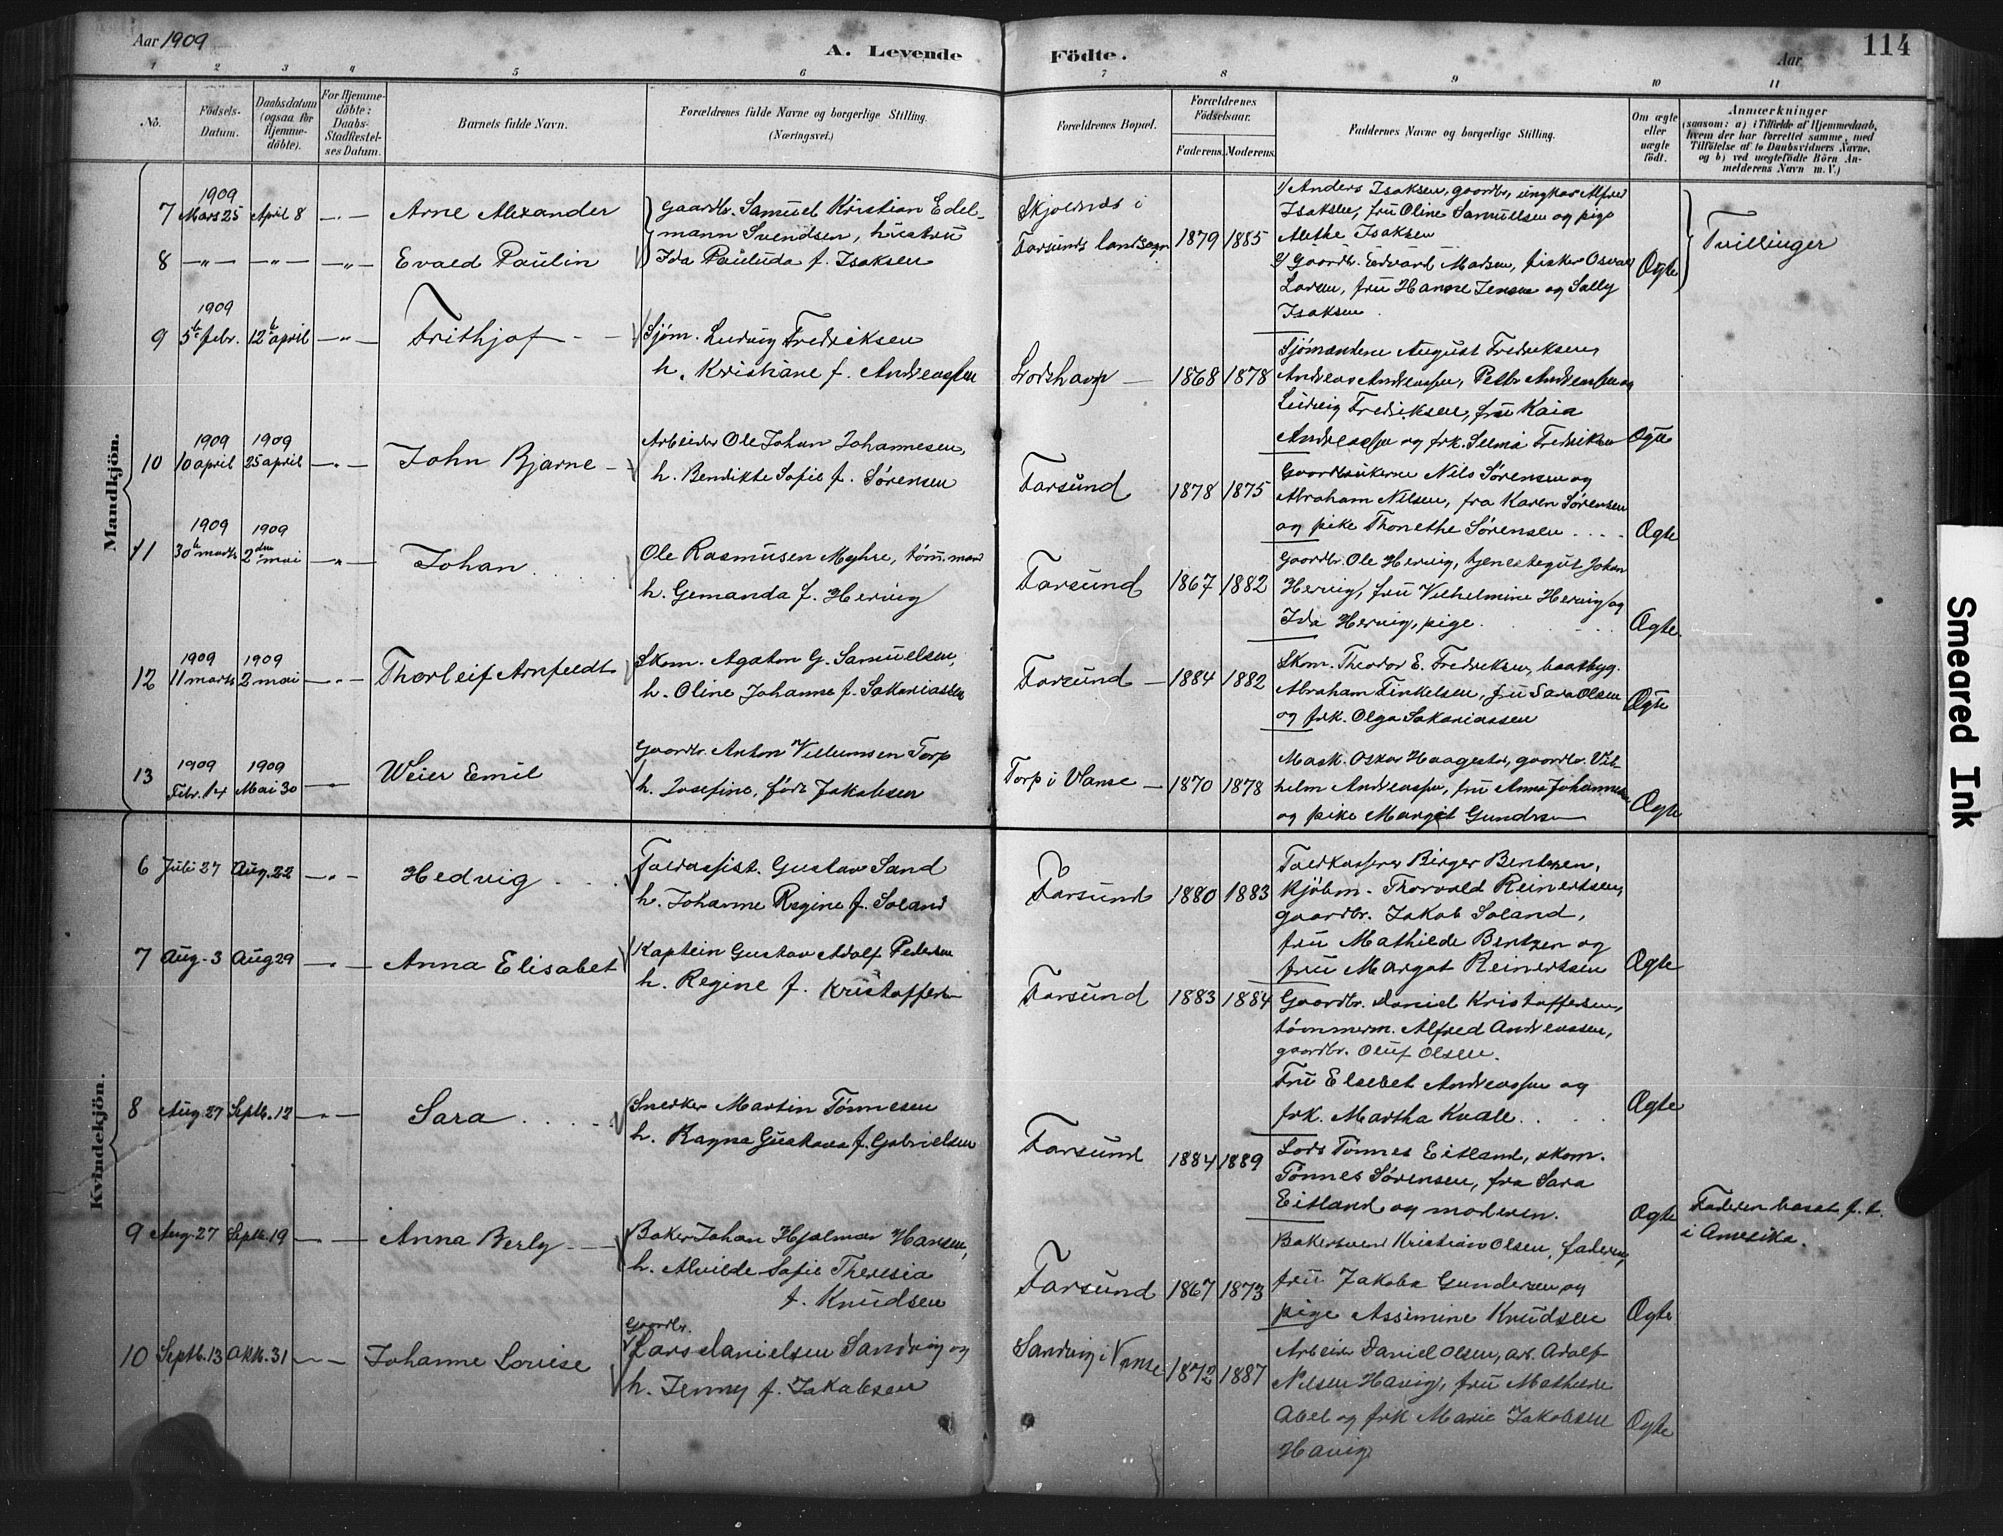 Aar 1909
A. Levende
Födte.
Aar
114
1 2 3 4 5 6 7 8 9 10 11
No.
Födsels-Datum.
Daabsdatum (ogsaa for Hjemme-döbte).
For Hjemme-döbte: Daabs-Stadfæstel-ses Datum.
Barnets fulde Navn.
Forældrenes fulde Navne og borgerlige Stilling.
(Næringsvei.)
Forældrenes Bopæl.
Forældrenes Födselsaar.
Faderens. Moderens.
Faddernes Navne og borgerlige Stilling.
Om ægte eller uægte födt.
Anmærkninger
(saasom: a) i Tilfælde af Hjemmedaab,
hvem der har forrettet samme, med
Tilföielse af to Daabsvidners Navne,
og b) ved uægtefödte Börn An-
melderens Navn m. V.)
Mandkjön.
7 1909 Mars 25 April 8 Arne Alexander
Gaardbr. Samuel Kristian Edel-
mann Svendsen, hustru
8 Evald Paulin
Ida Pauluda f. Isaksen
Skjolnes i
Farsunds landsogn 1879 1885
1/ Anders Isaksen, gaardbr., ungkar Alfred
Isaksen, fru Oline Samuelsen og pige
Alethe Isaksen
2/ Gaardbr. Edvard Madsen, fisker Osvald
Larsen, fru Hanne Jensen og Sally
Isaksen.
Ægte
Tvillinger
9 1909 5te febr. 12te april Frithjof
Sjøm. Ludvig Fredriksen
h. Kristiane f. Andreassen
Lodshavn 1868 1878
Sjømændene August Fredriksen,
Andreas Andreassen, Peder Andreassen og
Ludvig Fredriksen, fru Kaia
Andreassen og frk. Selma Fredriksen
Ægte
10 1909 10 april 1909 25 april John Bjarne
Arbeider Ole Johan Johannesen,
h. Bendikte Sofie f. Sørensen
Farsund 1878 1875
Gaardbrukerne Nils Sørensen og
Abraham Nilsen, fru Karen Sørensen
og pike Thonethe Sørensen
Ægte
11 1909 30te marts 1909 2den mai Johan
Ole Rasmusen Myhre, tøm.mand
h. Gemanda f. Hervig
Farsund 1867 1882
Gaardbr. Ole Hervig, tjenestegut Johan
Hervig, fru Vilhelmine Hervig og
Ida Hervig, pige.
Ægte
12 1909 11 marts 1909 2 mai Thorleif Arnfeldt
Skom. Agaton G. Samuelsen,
h. Oline Johanne f. Sakariassen
Farsund 1884 1882
Skom. Theodor E. Fredriksen, baatbyg.
Abraham Finkelsen, fru Sara Olsen
og frk. Olga Sakariassen
Ægte
13 1909 Febr. 14 1909 Mai 30 Weier Emil
Gaardbr. Anton Villumsen Torp
h. Josefine, født Jakobsen
Torp i Vanse 1870 1878
Mask. Oskar Haagestad, gaardbr. Vil-
helm Andreassen, fru Anna Johannesen
og pike Margit Gundersen
Ægte
Kvindekjön.
6 Juli 27 Aug. 22 Hedvig
Toldassist. Gustav Sand
h. Johanne Regine f. Soland
Farsund 1880 1883
Toldkasserer Birger Bentzen,
kjøbm. Thorvald Reinertsen,
gaardbr. Jakob Soland,
fru Mathilde Bentzen og
fru Margot Reinertsen
Ægte
7 Aug. 3 Aug 29 Anna Elisabet
Kaptein Gustav Adolf Pedersen
h. Regine f. Kristoffersen
Farsund 1883 1884
Gaardbr. Daniel Kristoffersen,
tømmerm. Alfred Andreassen,
gaardbr. Oluf Olsen.
Fru Elsebet Andreassen og
frk. Martha Kvale.
Ægte
8 Aug. 27 Septb. 12 Sara
Snedker Martin Tønnesen
h. Ragna Gustava f. Gabrielsen
Farsund 1884 1889
Lods Tønnes Eitland, skom.
Tønnes Sørensen, fru Sara
Eitland og moderen.
Ægte
Faderen bosat f. t.
i Amerika.
9 Aug. 27 Septb. 19 Anna Berly
Baker Johan Hjalmar Hansen,
h. Alvilde Sofie Theresia
f. Knudsen
Farsund 1867 1873
Bakersvend Kristian Olsen, faderen,
fru Jakoba Gundersen og
pige Assimine Knudsen
Ægte
10 Septb. 13 Oktb. 31 Johanne Lovise
Gaardbr.
Lars Danielsen Sandvig og
h. Jenny f. Jakobsen
Sandvig i Vanse 1872 1887
Arbeider Daniel Olsen, arb. Adolf
Nilsen Havig, fru Mathilde
Abel og frk Marie Jakobsen
Havig
Ægte
Smeared Ink